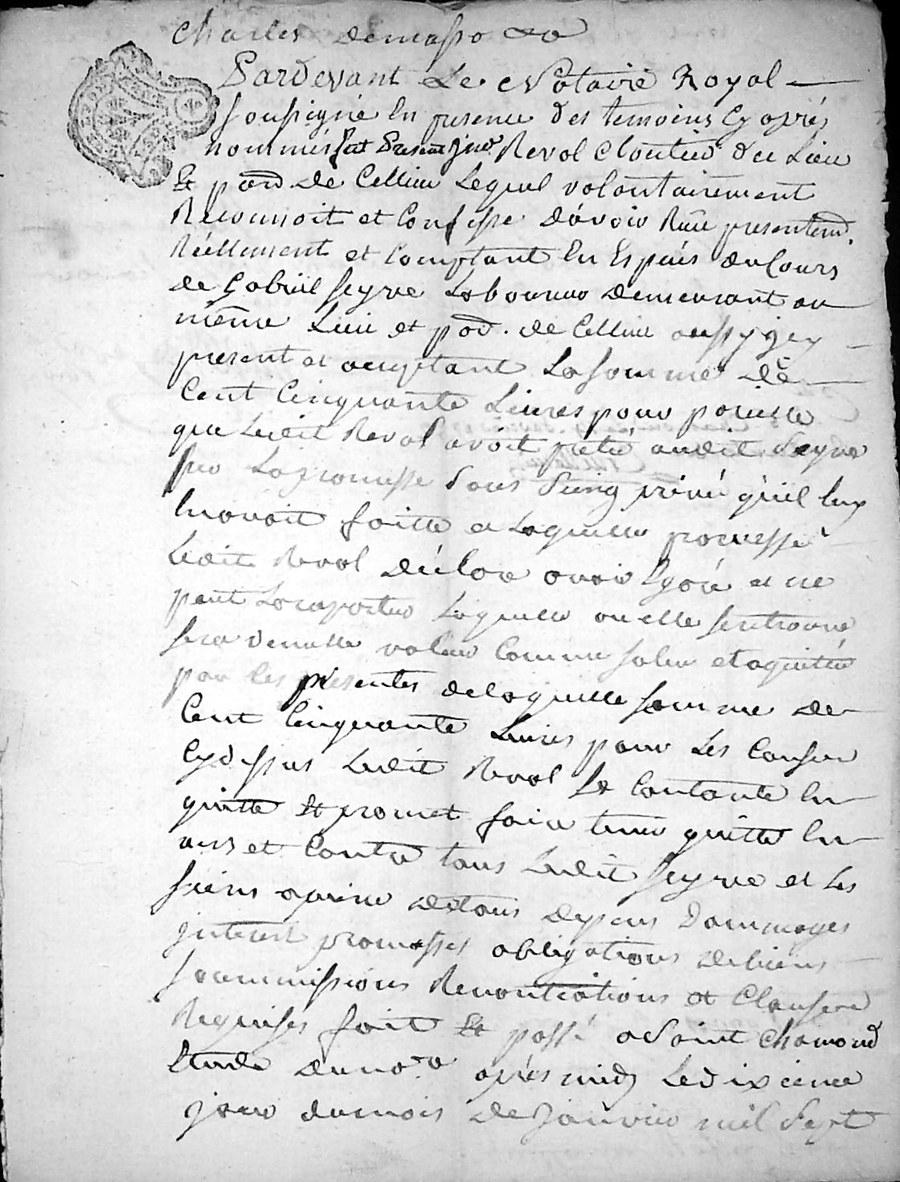 Charles demasso
Pardevant Le Notaire Royal
soussigné En presence des temoins Cy aprés
nommés fut Present Revol Cloutier du Lieu
Et par. de Cellieu Lequel volontairement
Reconnoit et Confesse d'avoir Recu presentemt.
Reellement et Comptant En Espéces du Cours
de Gabriel seyve Laboureur demeurant au
même Lieu et par. de Cellieu aussy jcy
present et acceptant La somme de
Cent Cinquante Livres pour pareille
que Ledit Revol avoit preté audit Seyve
par La promesse Sous Seing privé qu'il luy
En avoit faitte a Laquelle promesse
Ledit Revol déclare avoir Egaré et ne
peut La raporter Laquelle ou elle se trouve
sera de nulle valeur Comme solue et aquittée
par les presentes de laquelle somme de
Cent Cinquante Livres pour Les Causes
Cy dessus Ledit Revol Se Contante En
quitte Et promet faire tenir quitte En
vers et Contre tous Ledit Seyve et Les
siens a peine de tous depens dommages
jnterest promesses obligations de biens
soummissions Renontiations et Clauses
Requises fait Et passé a Saint Chamond
Etude du nore aprés midy Le dixieme
jour du mois de Janvier mil Sept